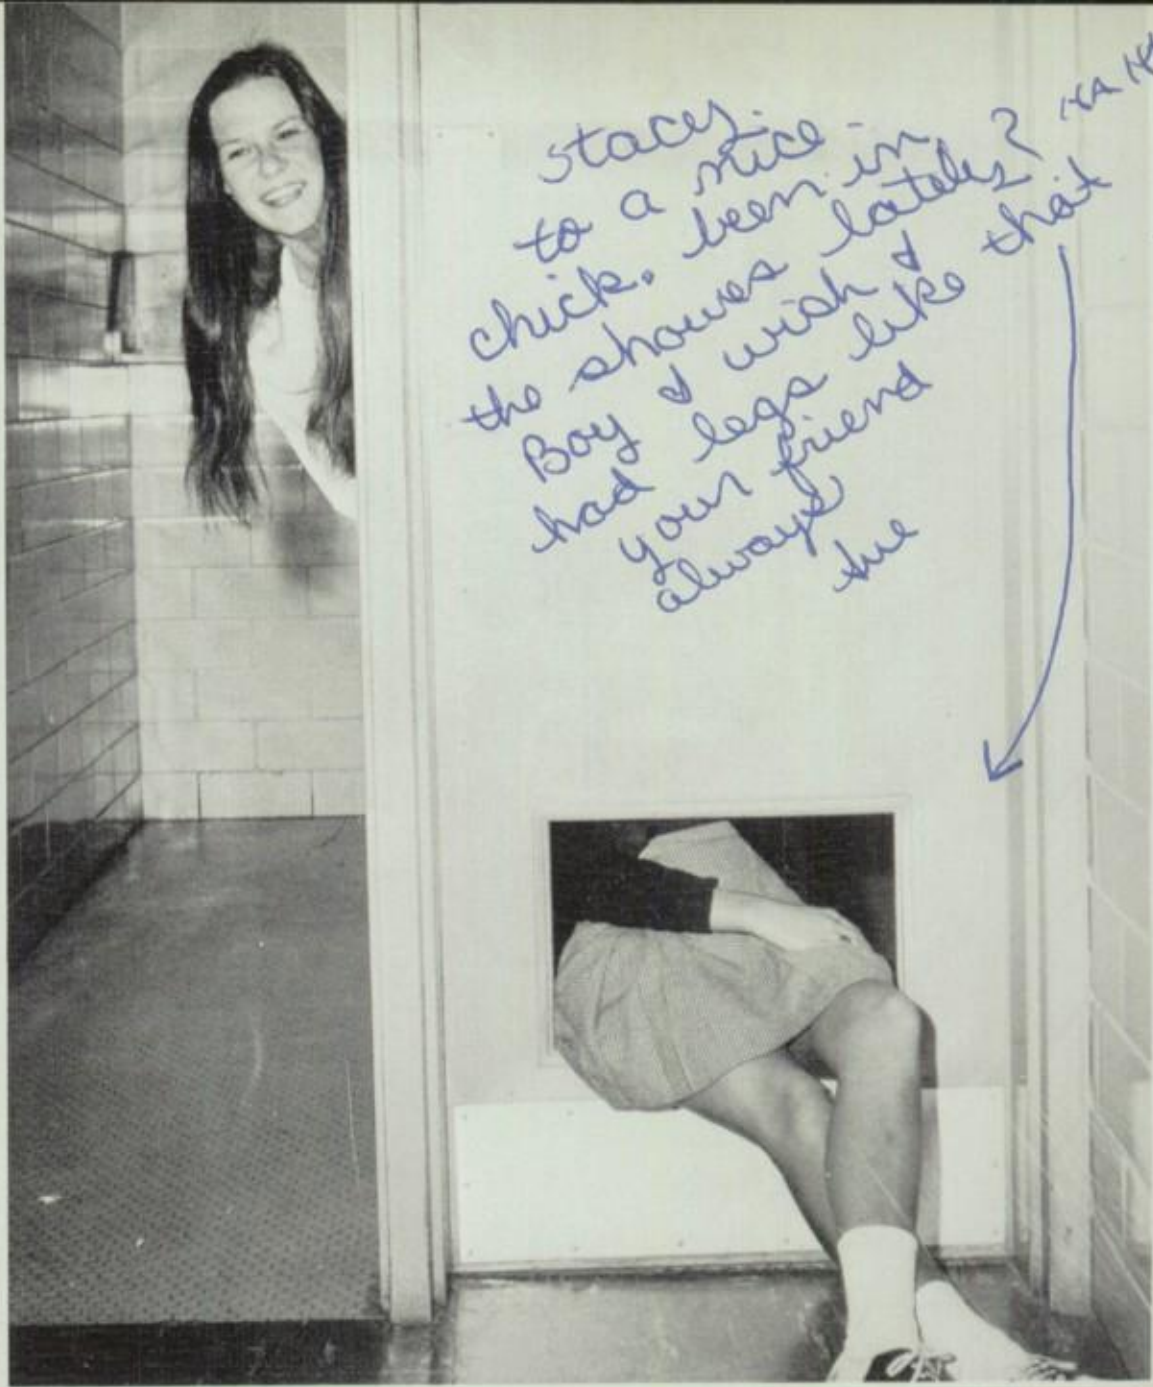 stacey.
to a nice
chick. been in
the showes lately? HA HA
Boy I wish I
had legs like that
your friend
always
Sue